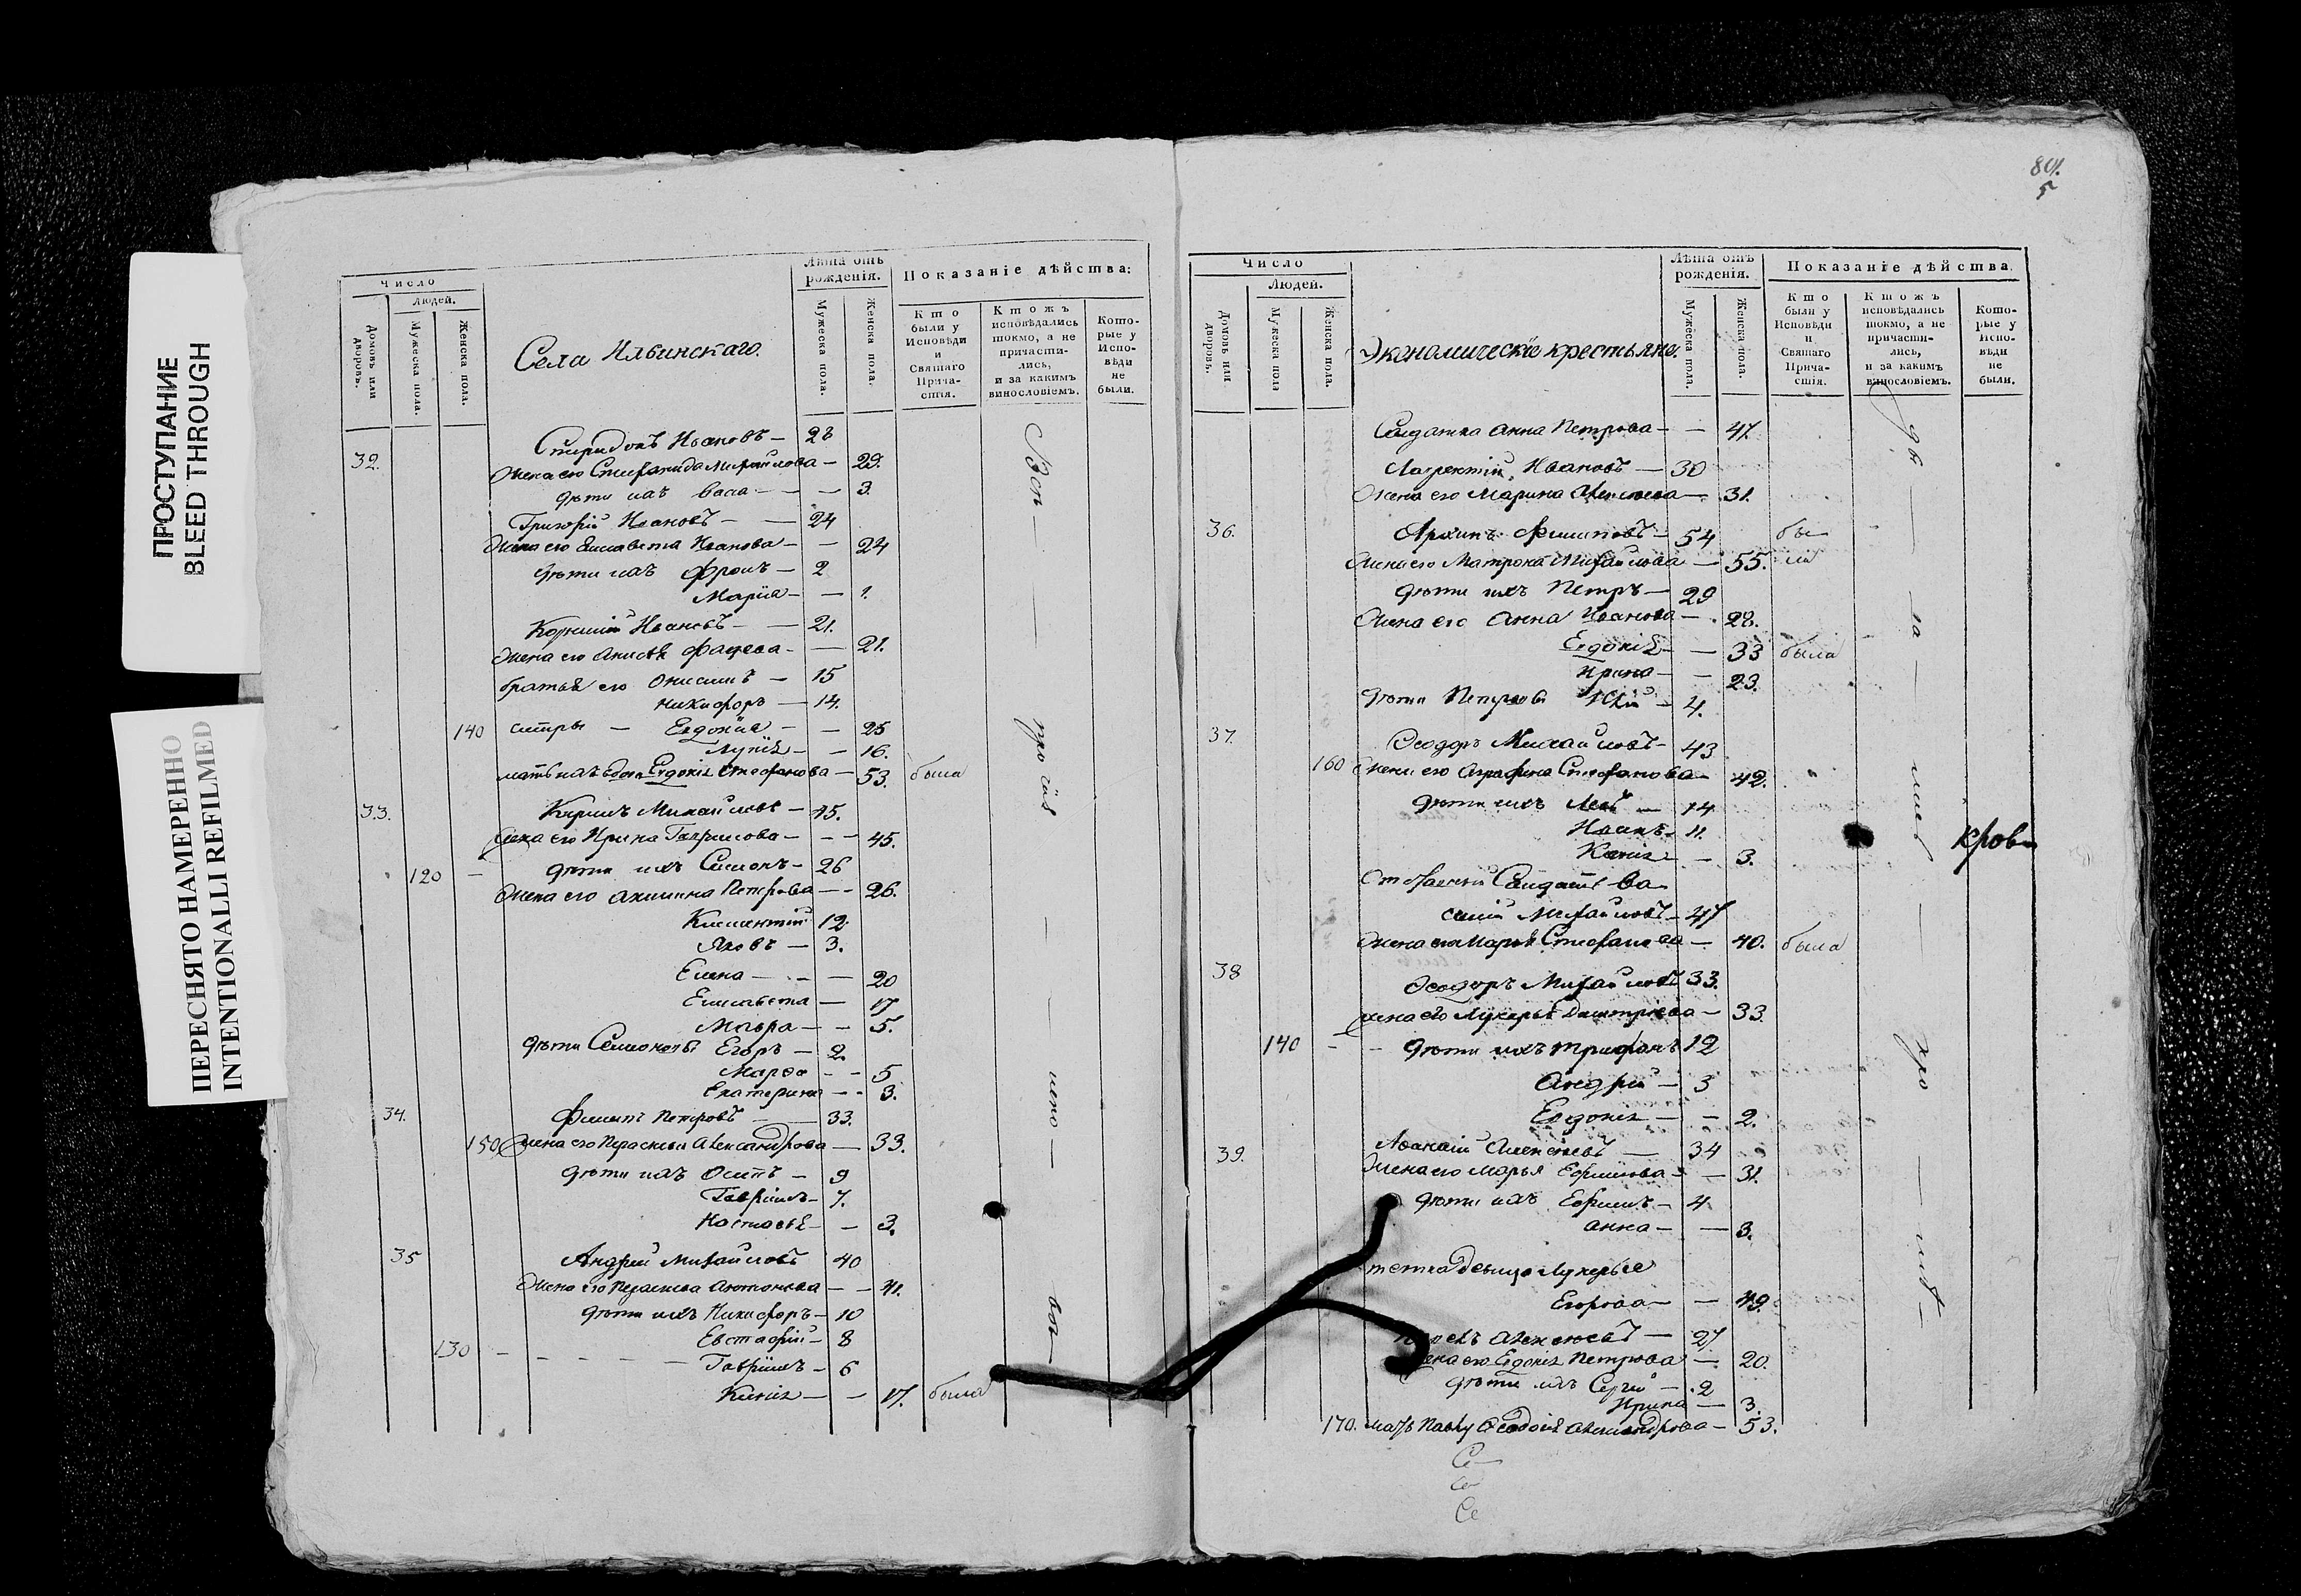 ПРОСТУПАНИЕ
BLEED THROUGH
ПЕРЕСНЯТО НАМЕРЕННО
INTENTIONALLI REFILMED
Число
Людей.
Домовъ или дворовъ.
Мужеска пола.
Женска пола.
Села Ильинскаго.
Лѣта отъ рожденія.
Мужеска пола.
Женска пола.
Показаніе дѣйства:
Кто были у Исповѣди и Святаго Прича-стія.
Ктожъ исповѣдались токмо, а не причасти-лись, и за какимъ винословіемъ.
Кото-рые у Испо-вѣди не были.
32. Спиридонъ Ивановъ — 28
Жена его Стефанида Михайлова — 29.
дѣти ихъ Васа — — 3.
Григорій Ивановъ — — 24
Жена его Елисавета Иванова — — 24
дѣти ихъ Фролъ — 2
Марія — — 1.
Корнилій Ивановъ — — 21.
Жена его Анисья — — 21.
братья его Онисимъ — 15
Никифоръ — 14.
140 сестры — Евдокія — — 25
— — 16.
мать ихъ вдова Евдокія Стефанова — 53. была
33. Михайловъ — 45.
Жена его Ирина Гаврилова — — 45.
120 — дѣти ихъ Симонъ — 26
Жена его Акилина Петрова — — 26.
Климентій 12
Яковъ — 3.
Елена — — 20
Елисавета — 17
Мавра — — 5.
дѣти Симоновы Егоръ — 2.
Марфа — — 5
Екатерина — — 3.
34. Филипъ Петровъ — 33.
150 Жена его Параскева Александрова — 33.
дѣти ихъ Осипъ — 9
Гавріилъ — 7.
Настасья — — 3.
35 Андрей Михайловъ 40
Жена его Параскева Антонова — — 41.
дѣти ихъ Никифоръ — 10
Евстафій — 8
130 — — — — — Гавріилъ — 6
— — 17. была
Всѣ — про сіе — — —
801.
5
Число
Людей.
Домовъ или дворовъ.
Мужеска пола
Женска пола.
Экономическіе крестьяне.
Лѣта отъ рожденія.
Мужеска пола.
Женска пола.
Показаніе дѣйства.
Кто были у Исповѣди и Святаго Прича-стія.
Ктожъ исповѣдались токмо, а не причасти-лись, и за какимъ винословіемъ.
Кото-рые у Испо-вѣди не были.
Салдатка Анна Петрова — — 47.
Лаврентій Ивановъ — 30
Жена его Марина Алексѣева — 31.
36. Архипъ Филиповъ — 54 бы
Жена его Матрона Михайлова — 55. ли
дѣти ихъ Петръ — 29
Жена его Анна Иванова — 28.
Евдокія — — 33 была
Ирина — — 23.
дѣти Петровы — 4.
37. Ѳеодоръ Михайловъ — 43
160 Жена его Аграфена Стефанова — 42.
дѣти ихъ — 14
Иванъ — 11.
— 3.
Отставный Салдатъ Ва
силій Михайловъ — 47
Жена его Марья Стефанова — 40. была
38 Ѳеодоръ Михайловъ 33.
Жена его Лукерья Дмитріева — 33
140 — — дѣти ихъ Трифонъ 12
Андрей — 3
Евдокія — — 2.
39. Аѳанасій Алексѣевъ — 34
Жена его Марья Ефимова — — 31.
дѣти ихъ Ефимъ — 4
Анна — — 3.
тетка девица Лукерья
Егорова — — 49.
Алексѣевъ — 27
Жена его Евдокія Петрова — 20.
дѣти ихъ Сергій — 2
Ирина — 3.
170. мать Павлу Ѳеодосія Александрова — 53.
Се
Се
Се
кровъ